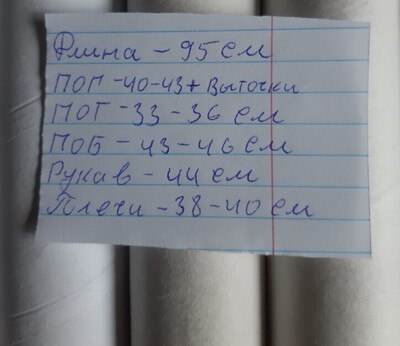 Длина - 95 см
ПОП -40-43+ Выточки
ПОТ -33-36 см
ПОБ - 43-46 см
Рукав - 44 см
Плечи - 38-40 см